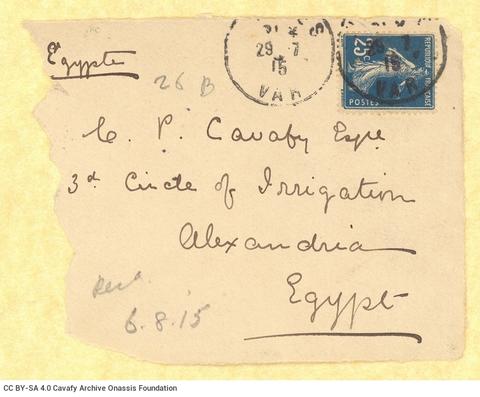 Egypte
29 7
15
VAR
29 7
15
VAR
25c
REPUBLIQUE FRANÇAISE
POSTES
26 B
C. P. Cavafy Esqre
3rd Circle of Irrigation
Alexandria
Egypt
6.8.15
CC BY-SA 4.0 Cavafy Archive Onassis Foundation